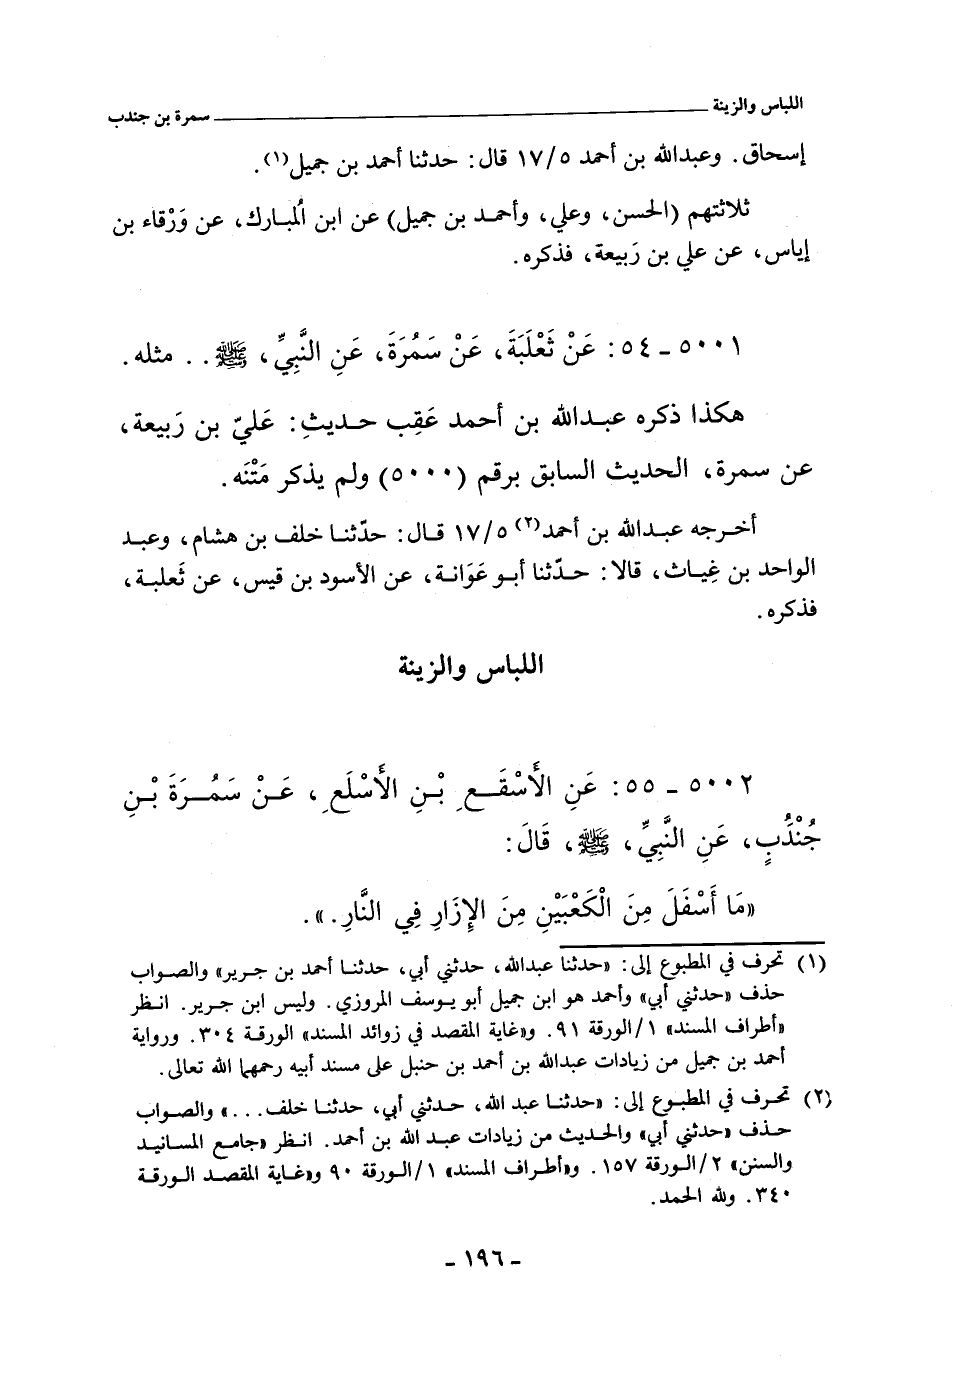 اللباس والزينة ــــــــــ سمرة بن جندب
إسحاق. وعبدالله بن أحمد ١٧/٥ قال: حدثنا أحمد بن جميل(١).
ثلاثتهم (الحسن، وعلي، وأحمد بن جميل) عن ابن الُمبارك، عن وَرْقاء بن
إياس، عن علي بن رَبيعة، فذكره.
٥٠٠١ ـ ٥٤: عَنْ ثَعْلَبَةَ، عَنْ سَمُرَةَ، عَنِ النَّبِيِّ، ﷺ.. مثله.
هكذا ذكره عبدالله بن أحمد عَقِب حديثِ: عَليّ بن رَبيعة،
عن سمرة، الحديث السابق برقم (٥٠٠٠) ولم يذكر مَتْنَه.
أخرجه عبدالله بن أحمد(٢) ١٧/٥ قال: حدّثنا خلف بن هشام، وعبد
الواحد بن غِياث، قالا: حدّثنا أبو عَوَانة، عن الأسود بن قيس، عن ثَعلبة،
فذكره.
اللباس والزينة
٥٠٠٢ ـ ٥٥: عَنِ الأَسْقَعِ بْنِ الأَسْلَعِ، عَنْ سَمُرَةَ بْنِ
جُنْدُبٍ، عَنِ النَّبِيِّ، ﷺ، قَالَ:
«مَا أَسْفَلَ مِنَ الْكَعْبَيْنِ مِنَ الإِزَارِ فِي النَّارِ.».
(١) تحرف في المطبوع إلى: «حدثنا عبدالله، حدثني أبي، حدثنا أحمد بن جرير» والصواب
حذف «حدثني أبي» وأحمد هو ابن جميل أبو يوسف المروزي. وليس ابن جرير. انظر
«أطراف المسند» ١/الورقة ٩١. و«غاية المقصد في زوائد المسند» الورقة ٣٠٤. ورواية
أحمد بن جميل من زيادات عبدالله بن أحمد بن حنبل على مسند أبيه رحمهما الله تعالى.
(٢) تحرف في المطبوع إلى: «حدثنا عبد الله، حدثني أبي، حدثنا خلف...» والصواب
حذف «حدثني أبي» والحديث من زيادات عبد الله بن أحمد. انظر «جامع المسانيد
والسنن» ٢/الورقة ١٥٧. و«أطراف المسند» ١/الورقة ٩٠ و«غاية المقصد الورقة
٣٤٠. ولله الحمد.
ـ ١٩٦ ـ